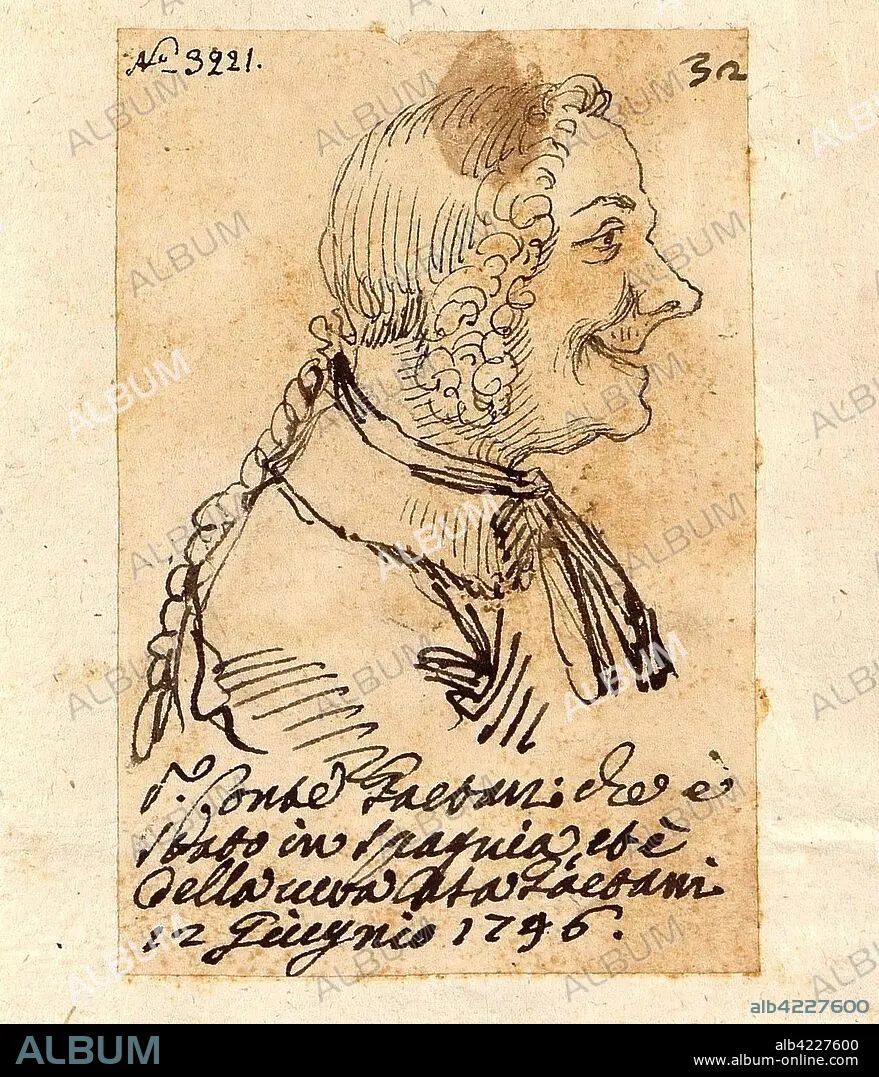 No 3221.
32
Sr. Conte Gaetani; che è
stato in Spagnia, et è
della vera Casa Gaetani
12 Giugnio 1796.
ALBUM
alb4227600
ALBUM
alb4227600
www.album-online.com